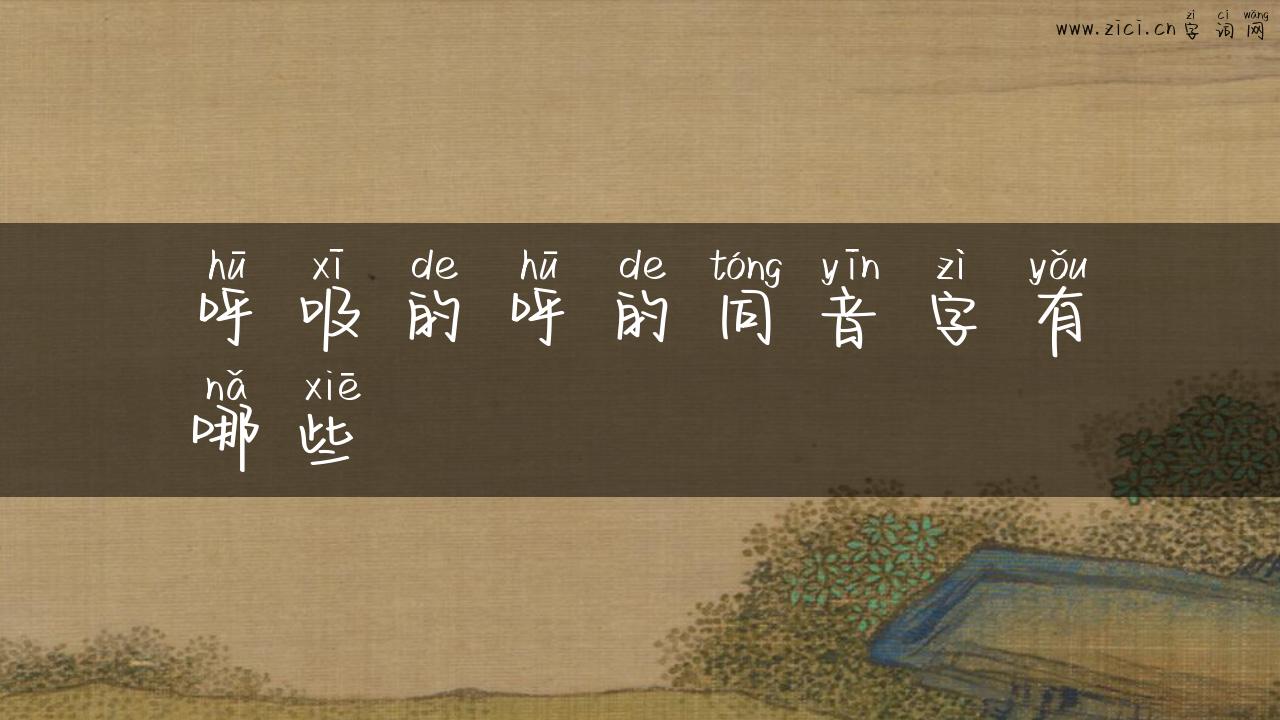 zì cí wǎng
www.zici.cn 字词网
hū xī de hū de tóng yīn zì yǒu
呼吸的呼的同音字有
nǎ xiē
哪些